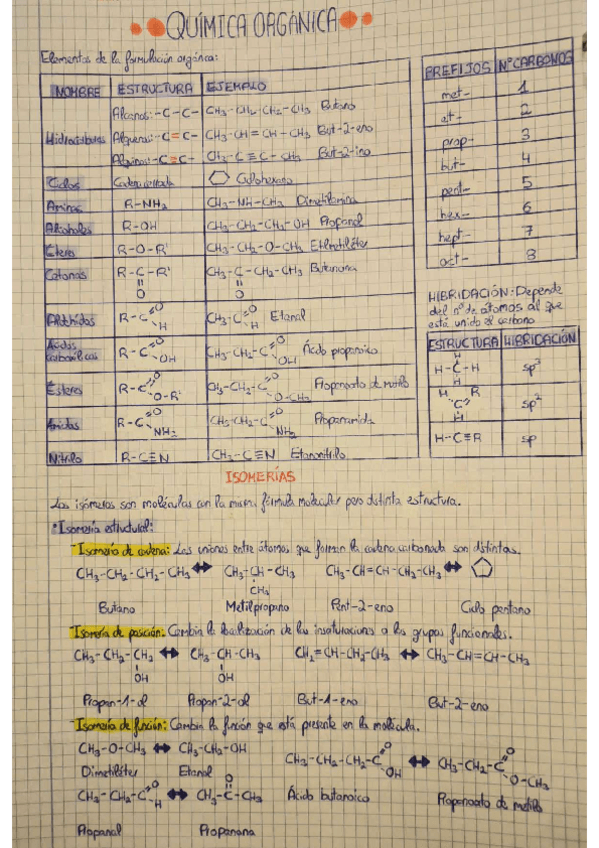 QUÍMICA ORGANICA
Elementos de la formulación orgánica:
NOMBRE ESTRUCTURA EJEMPLO
Hidrocarburos
Alcanos: -C-C- CH3-CH2-CH2-CH3 Butano
Alquenos: -C=C- CH3-CH=CH-CH3 But-2-eno
Alquinos: -C≡C- CH3-C≡C-CH3 But-2-ino
Ciclos Cadena cerrada Ciclohexano
Aminas R-NH2 CH3-NH-CH3 Dimetilamina
Alcoholes R-OH CH3-CH2-CH2-OH Propanol
Éteres R-O-R' CH3-CH2-O-CH3 Etilmetiléter
Cetonas R-C-R' CH3-C-CH2-CH3 Butanona
O O
Aldehídos R-C O H CH3-C O H Etanal
Ácidos carboxílicos R-C O OH CH3-CH2-C O OH Ácido propanoico
Ésteres R-C O O-R' CH3-CH2-C O O-CH3 Propanoato de metilo
Amidas R-C O NH2 CH3-CH2-C O NH2 Propanamida
Nitrilo R-C≡N CH3-C≡N Etanonitrilo
PREFIJOS Nº CARBONOS
met- 1
et- 2
prop- 3
but- 4
pent- 5
hex- 6
hept- 7
oct- 8
HIBRIDACIÓN: Depende
del nº de átomos al que
está unido el carbono
ESTRUCTURA HIBRIDACIÓN
H
H-C-H sp3
H
H R
C sp2
H
H-C≡R sp
ISOMERÍAS
Los isómeros son moléculas con la misma fórmula molecular pero distinta estructura.
*Isomería estructural:
-Isomería de cadena: Las uniones entre átomos que forman la cadena carbonada son distintas.
CH3-CH2-CH2-CH3 ↔ CH3-CH-CH3 CH3-CH=CH-CH2-CH3 ↔
CH3
Butano Metilpropano Pent-2-eno Ciclo pentano
-Isomería de posición: Cambia la localización de las insaturaciones o los grupos funcionales.
CH3-CH2-CH2 ↔ CH3-CH-CH3 CH2=CH-CH2-CH3 ↔ CH3-CH=CH-CH3
OH OH
Propan-1-ol Propan-2-ol But-1-eno But-2-eno
-Isomería de función: Cambia la función que está presente en la molécula.
CH3-O-CH3 ↔ CH3-CH2-OH CH3-CH2-CH2-C O OH ↔ CH3-CH2-C O O-CH3
Dimetiléter Etanol
CH3-CH2-C O H ↔ CH3-C-CH3 O Ácido butanoico Propanoato de metilo
Propanal Propanona